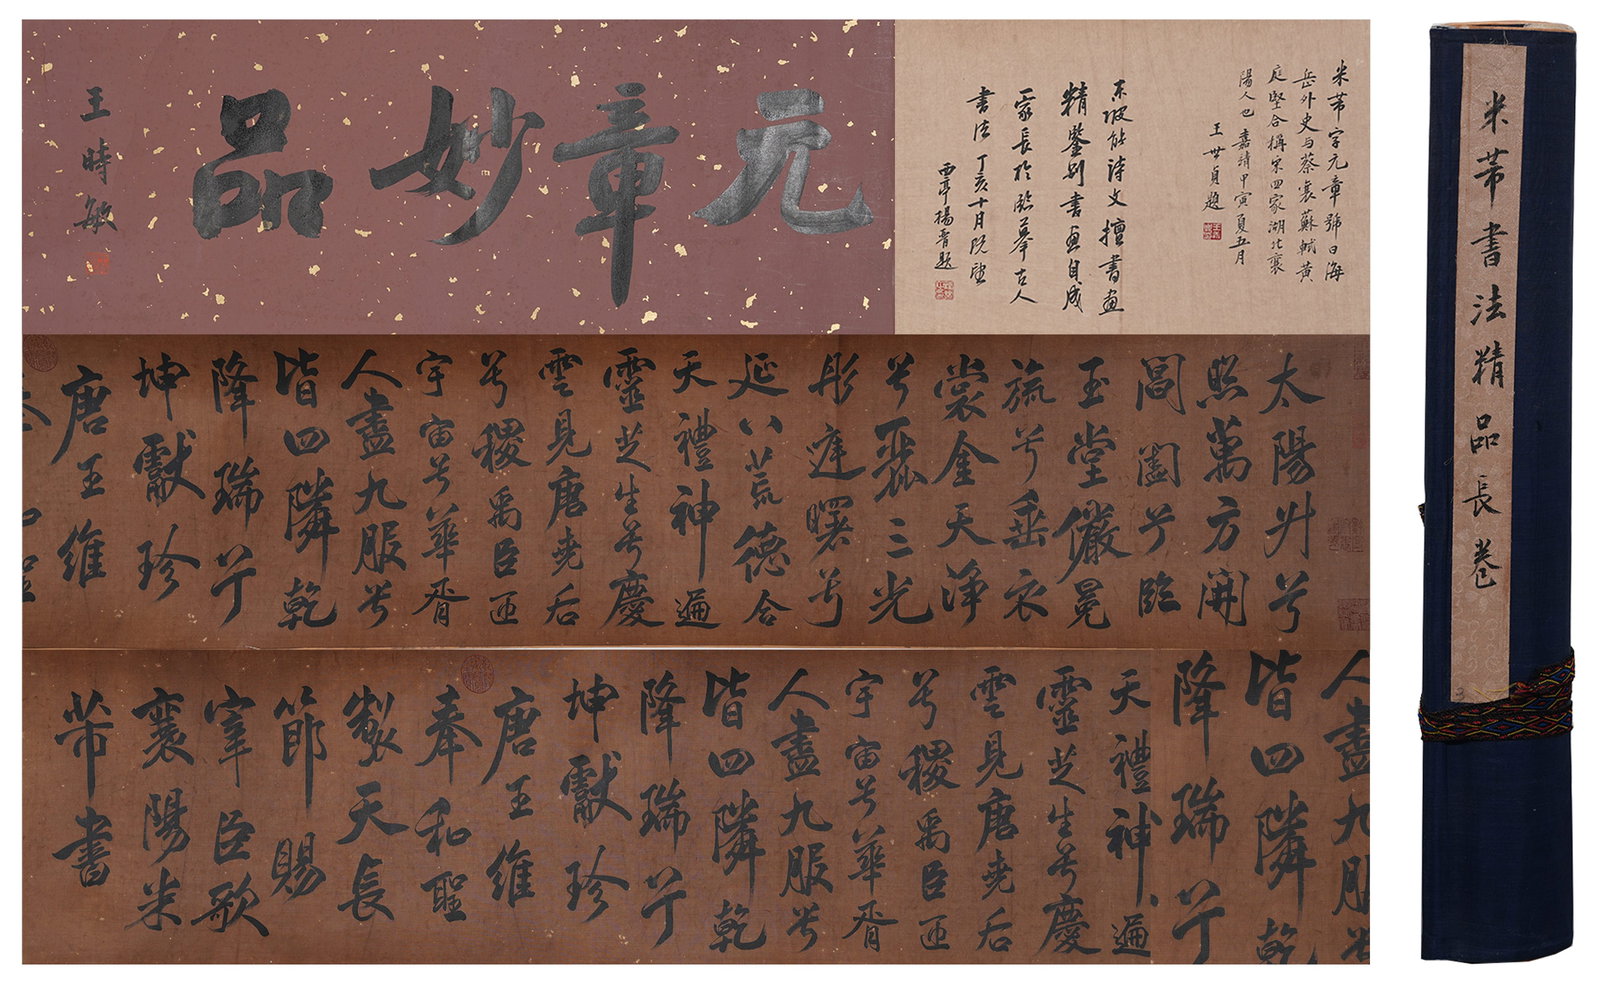 元章妙品
王時敏
米芾字元章號曰海
岳外史与蔡襄蘇軾黄
庭堅合稱宋四家湖北襄
陽人也嘉靖甲寅夏五月
王世貞題
東坡能詩文擅書画
精鑒別書画自成
一家長於臨摹古人
書法丁亥十月既望
西亭楊晋題
太陽升兮
照萬方開
閶闔兮臨
玉堂儼冕
旒兮垂衣
裳金天淨
兮麗三光
彤庭曙兮
延八荒德合
天禮神遍
靈芝生兮慶
雲見唐堯后
兮稷禹臣匝
宇宙兮華胥
人盡九服兮
皆四隣乾
降瑞兮
坤獻珍
唐王維
人盡九服兮
皆四隣乾
降瑞兮
天禮神遍
靈芝生兮慶
雲見唐堯后
兮稷禹臣匝
宇宙兮華胥
人盡九服兮
皆四隣乾
降瑞兮
坤獻珍
唐王維
奉和聖
製天長
節賜
宰臣歌
襄陽米
芾書
米芾書法精品長卷